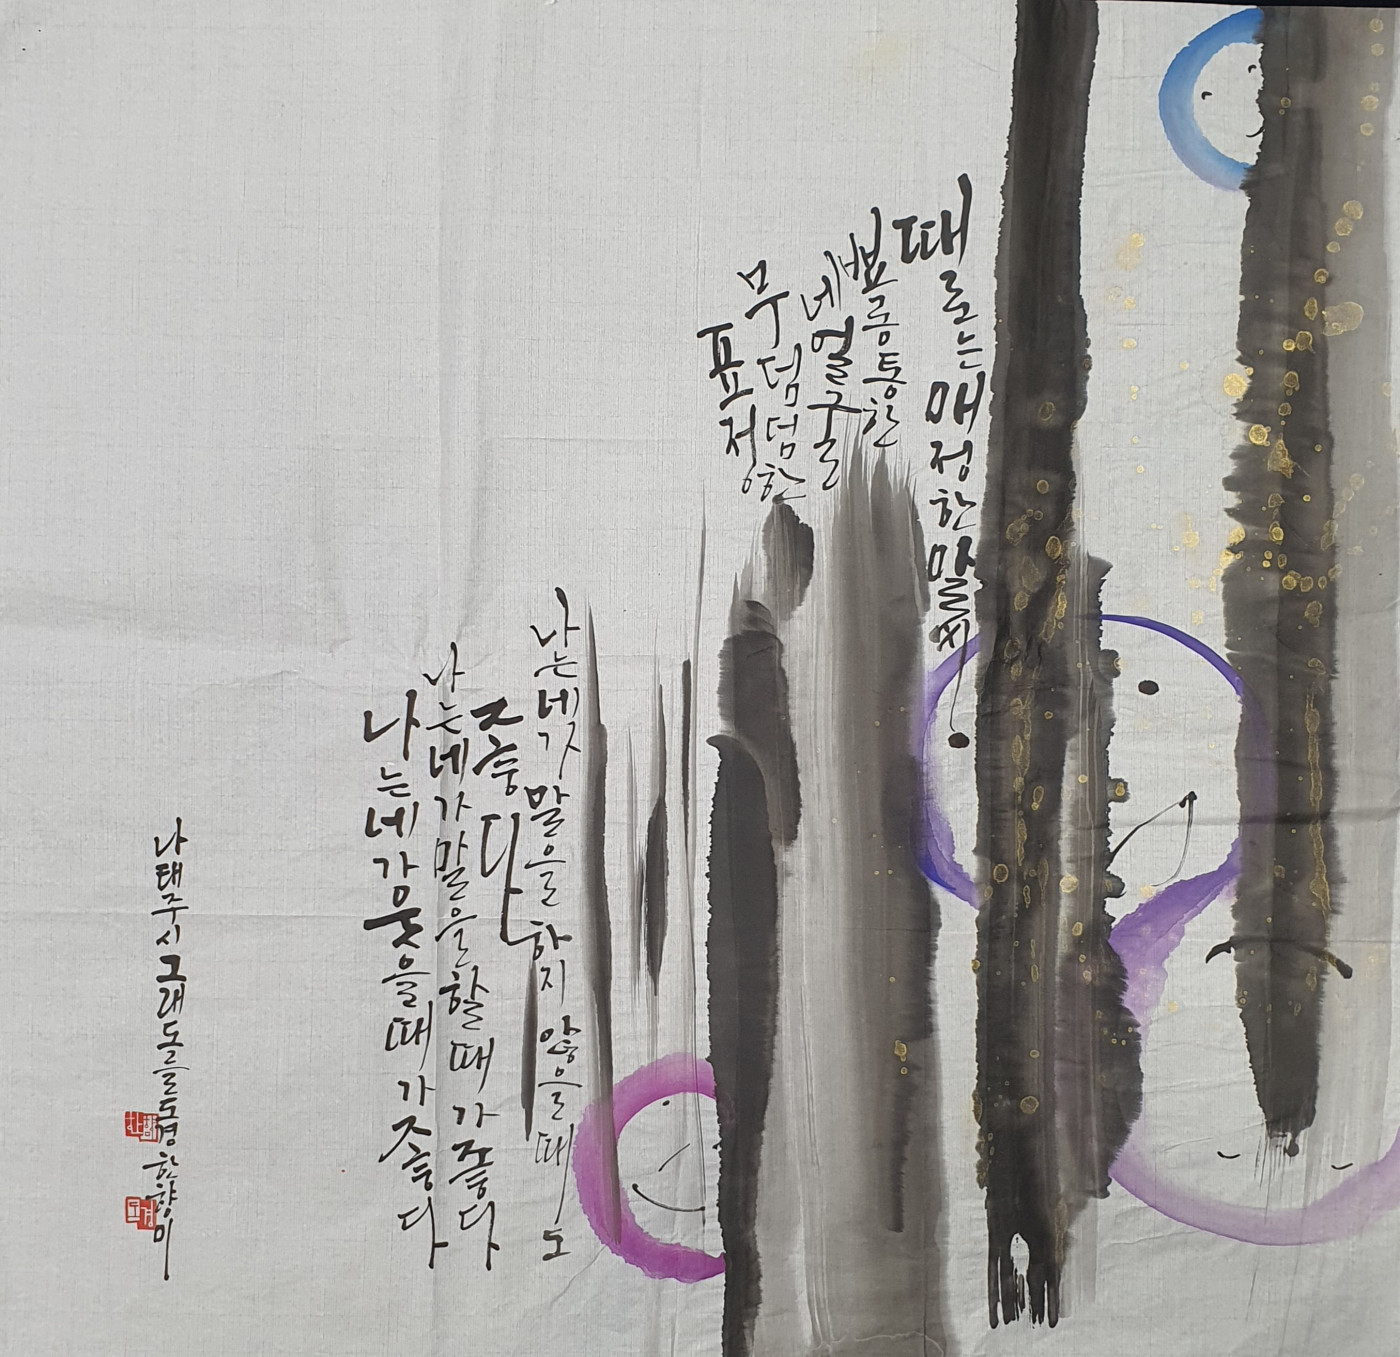 나는네가웃을때가좋다
나는네가말을할때가좋다
나는네가말을하지 않을때도
좋다
뾰롱통한
네얼굴
무덤덤한
표정
때로는매정한말씨
나태주시그래도를 도경 한향미
도경